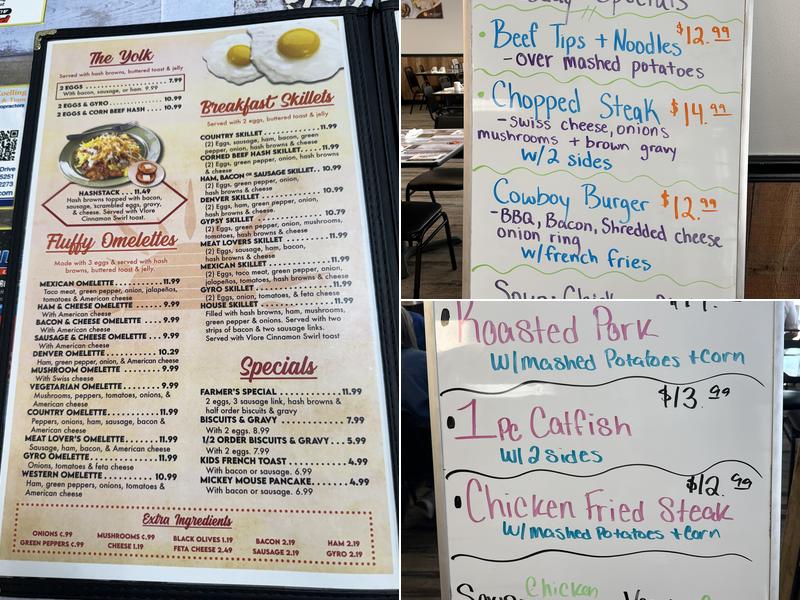 The Yolk
Served with hash browns, buttered toast & jelly
2 EGGS 7.99
With bacon, sausage, or ham. 9.99
2 EGGS & GYRO 10.99
2 EGGS & CORN BEEF HASH 10.99
HASHSTACK . . . 11.49
Hash browns topped with bacon,
sausage, scrambled eggs, gravy,
& cheese. Served with Vlore
Cinnamon Swirl toast.
Fluffy Omelettes
Made with 3 eggs & served with hash
browns, buttered toast & jelly.
MEXICAN OMELETTE 11.99
Taco meat, green pepper, onion, jalapeños,
tomatoes & American cheese
HAM & CHEESE OMELETTE 9.99
With American cheese
BACON & CHEESE OMELETTE 9.99
With American cheese
SAUSAGE & CHEESE OMELETTE 9.99
With American cheese
DENVER OMELETTE 10.29
Ham, green pepper, onion, & American cheese
MUSHROOM OMELETTE 9.99
With Swiss cheese
VEGETARIAN OMELETTE 9.99
Mushrooms, peppers, tomatoes, onions, &
American cheese
COUNTRY OMELETTE 11.99
Peppers, onions, ham, sausage, bacon &
American cheese
MEAT LOVER'S OMELETTE 11.99
Sausage, ham, bacon, & American cheese
GYRO OMELETTE 11.99
Onions, tomatoes & feta cheese
WESTERN OMELETTE 10.99
Ham, green peppers, onions, tomatoes &
American cheese
Breakfast Skillets
Served with 2 eggs, buttered toast & jelly
COUNTRY SKILLET 11.99
(2) Eggs, sausage, ham, bacon, green
pepper, onion, hash browns & cheese
CORNED BEEF HASH SKILLET 11.99
(2) Eggs, green pepper, onion, hash browns
& cheese
HAM, BACON OR SAUSAGE SKILLET 10.99
(2) Eggs, green pepper, onion,
hash browns & cheese
DENVER SKILLET 10.99
(2) Eggs, ham, green pepper, onion,
hash browns & cheese
GYPSY SKILLET 10.79
(2) Eggs, green pepper, onion, mushrooms,
tomatoes, hash browns & cheese
MEAT LOVERS SKILLET 11.99
(2) Eggs, sausage, ham, bacon,
hash browns & cheese
MEXICAN SKILLET 11.99
(2) Eggs, taco meat, green pepper, onion,
jalapeños, tomatoes, hash browns & cheese
GYRO SKILLET 11.99
(2) Eggs, onion, tomatoes, & feta cheese
HOUSE SKILLET 11.99
Filled with hash browns, ham, mushrooms,
green pepper & onions. Served with two
strips of bacon & two sausage links.
Served with Vlore Cinnamon Swirl toast
Specials
FARMER'S SPECIAL 11.99
2 eggs, 3 sausage link, hash browns &
half order biscuits & gravy
BISCUITS & GRAVY 7.99
With 2 eggs. 8.99
1/2 ORDER BISCUITS & GRAVY 5.99
With 2 eggs. 7.99
KIDS FRENCH TOAST 4.99
With bacon or sausage. 6.99
MICKEY MOUSE PANCAKE 4.99
With bacon or sausage. 6.99
Extra Ingredients
ONIONS ¢.99 MUSHROOMS ¢.99 BLACK OLIVES 1.19 BACON 2.19 HAM 2.19
GREEN PEPPERS ¢.99 CHEESE 1.19 FETA CHEESE 2.49 SAUSAGE 2.19 GYRO 2.19
Drive
5251
2273
Specials
Beef Tips + Noodles $12.99
- over mashed potatoes
Chopped Steak $14.99
- swiss cheese, onions
mushrooms + brown gravy
w/2 sides
Cowboy Burger $12.99
- BBQ, Bacon, Shredded cheese
onion ring
w/french fries
Roasted Pork
w/mashed Potatoes + Corn
$13.99
1 pc Catfish
w/2 sides
$12.99
Chicken Fried Steak
w/Mashed Potatoes + Corn
Chicken